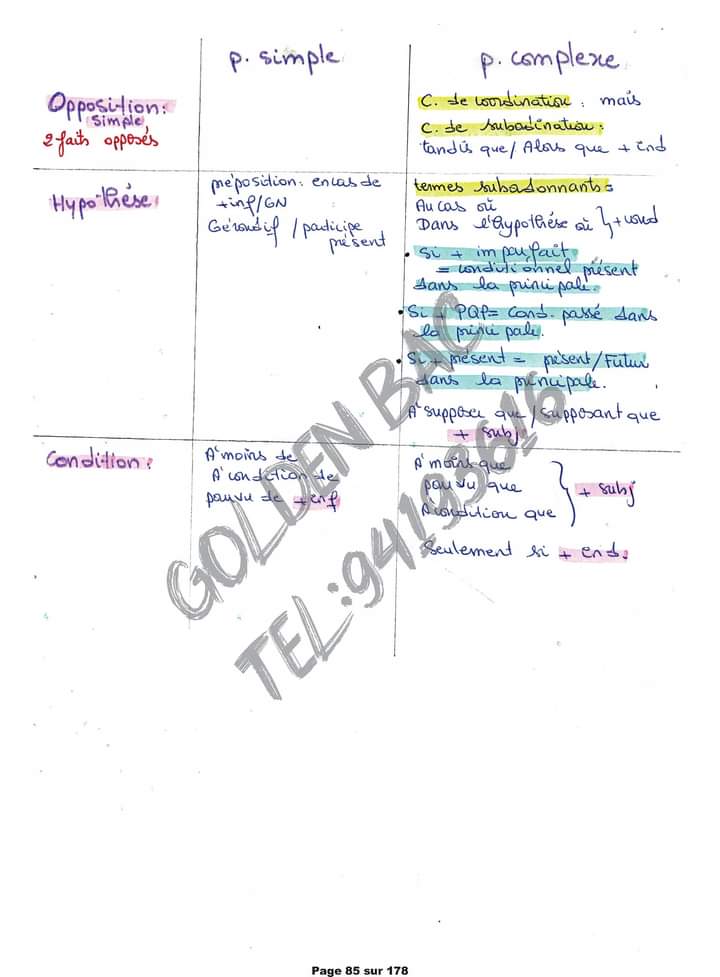 p. simple
p. complexe
Opposition:
simple
2 faits opposés
C. de coordination : mais
C. de subordination :
tandis que / Alors que + ind
Hypothése:
préposition : en cas de
+ inf/GN
Gérondif / participe
présent
termes subordonnants:
Au cas où
Dans l'hypothése où } + cond
• Si + imparfait
= conditionnel présent
dans la principale.
• Si + PQP = Cond. passé dans
la principale.
• Si + présent = présent/Futur
dans la principale.
A' supposer que / supposant que
+ subj
Condition:
A' moins de
A' condition de
pourvu de + inf
A' moins que
pourvu que
A' condition que
} + subj
Seulement si + ind.
GOLDEN BAC
TEL:94193616
Page 85 sur 178